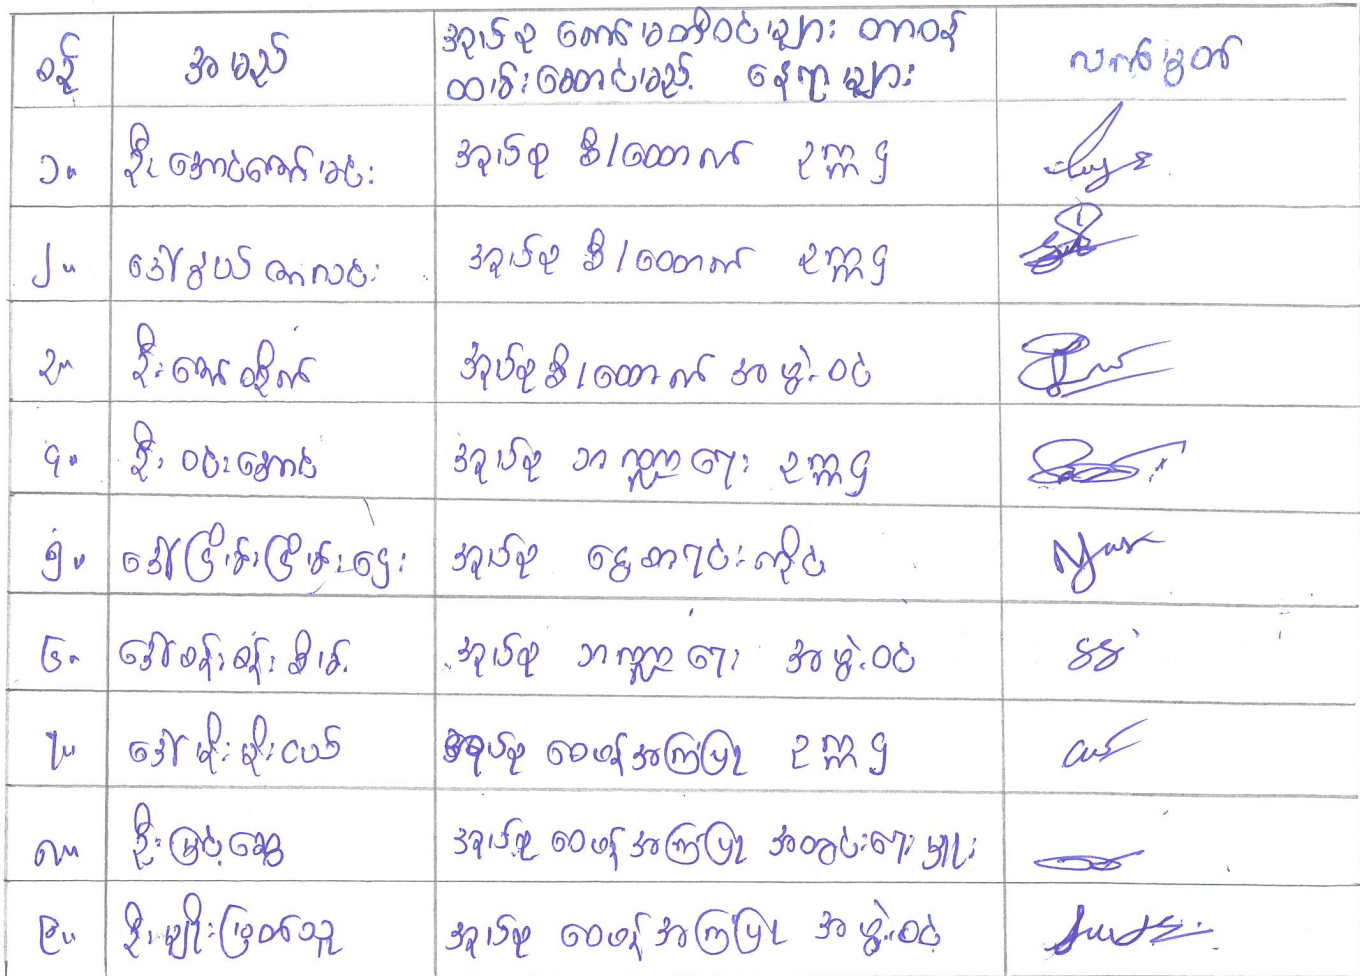 စဉ် အမည် အုပ်စု ကော်မတီဝင်များ တာဝန် လက်မှတ်
ထမ်းဆောင်မည့် နေရာများ
၁။ ဦးအောင်ကျော်မင်း အုပ်စု စီ/ထောက် ဥက္ကဌ
၂။ ဒေါ်နွယ်တာလင်း အုပ်စု စီ/ထောက် ဥက္ကဌ
၃။ ဦးကျော်ထိုက် အုပ်စု စီ/ထောက် အဖွဲ့ဝင်
၄။ ဦးဝင်းအောင် အုပ်စု ဘဏ္ဍာရေး ဥက္ကဌ
၅။ ဒေါ်ငြိမ်းငြိမ်းဌေး အုပ်စု ငွေစာရင်းကိုင်
၆။ ဒေါ်စန်းစန်းစိမ့် အုပ်စု ဘဏ္ဍာရေး အဖွဲ့ဝင်
၇။ ဒေါ်မိုးမိုးငယ် အုပ်စု ဝေဖန်အကြံပြု ဥက္ကဌ
၈။ ဦးမြင့်ဆွေ အုပ်စု ဝေဖန်အကြံပြု အတွင်းရေးမှူး
၉။ ဦးမျိုးမြတ်သူ အုပ်စု ဝေဖန်အကြံပြု အဖွဲ့ဝင်